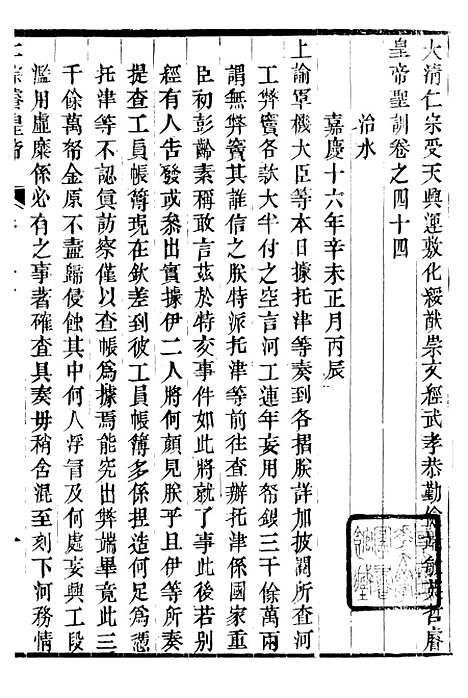 大清仁宗受天興運敷化綏猷崇文經武孝恭勤儉端敏英哲睿
皇帝聖訓卷之四十四
治水
嘉慶十六年辛未正月丙辰
上諭軍機大臣等本日據托津等奏到各摺朕詳加披閱所查河
工弊竇各款大半付之空言河工連年妄用帑銀三千餘萬兩
謂無弊竇其誰信之朕特派托津等前往查辦托津係國家重
臣初彭齡素稱敢言茲於特交事件如此將就了事此後若別
經有人告發或參出實據伊二人將何顏見朕乎且伊等所奏
提查工員帳簿現在欽差到彼工員帳簿多係捏造何足為憑
托津等不認真訪察僅以查帳為據焉能究出弊端畢竟此三
千餘萬帑金原不盡歸侵蝕其中何人浮冒及何處妄興工段
濫用虛糜係必有之事著確查具奏毋稍含混至刻下河務情
仁宗睿皇帝